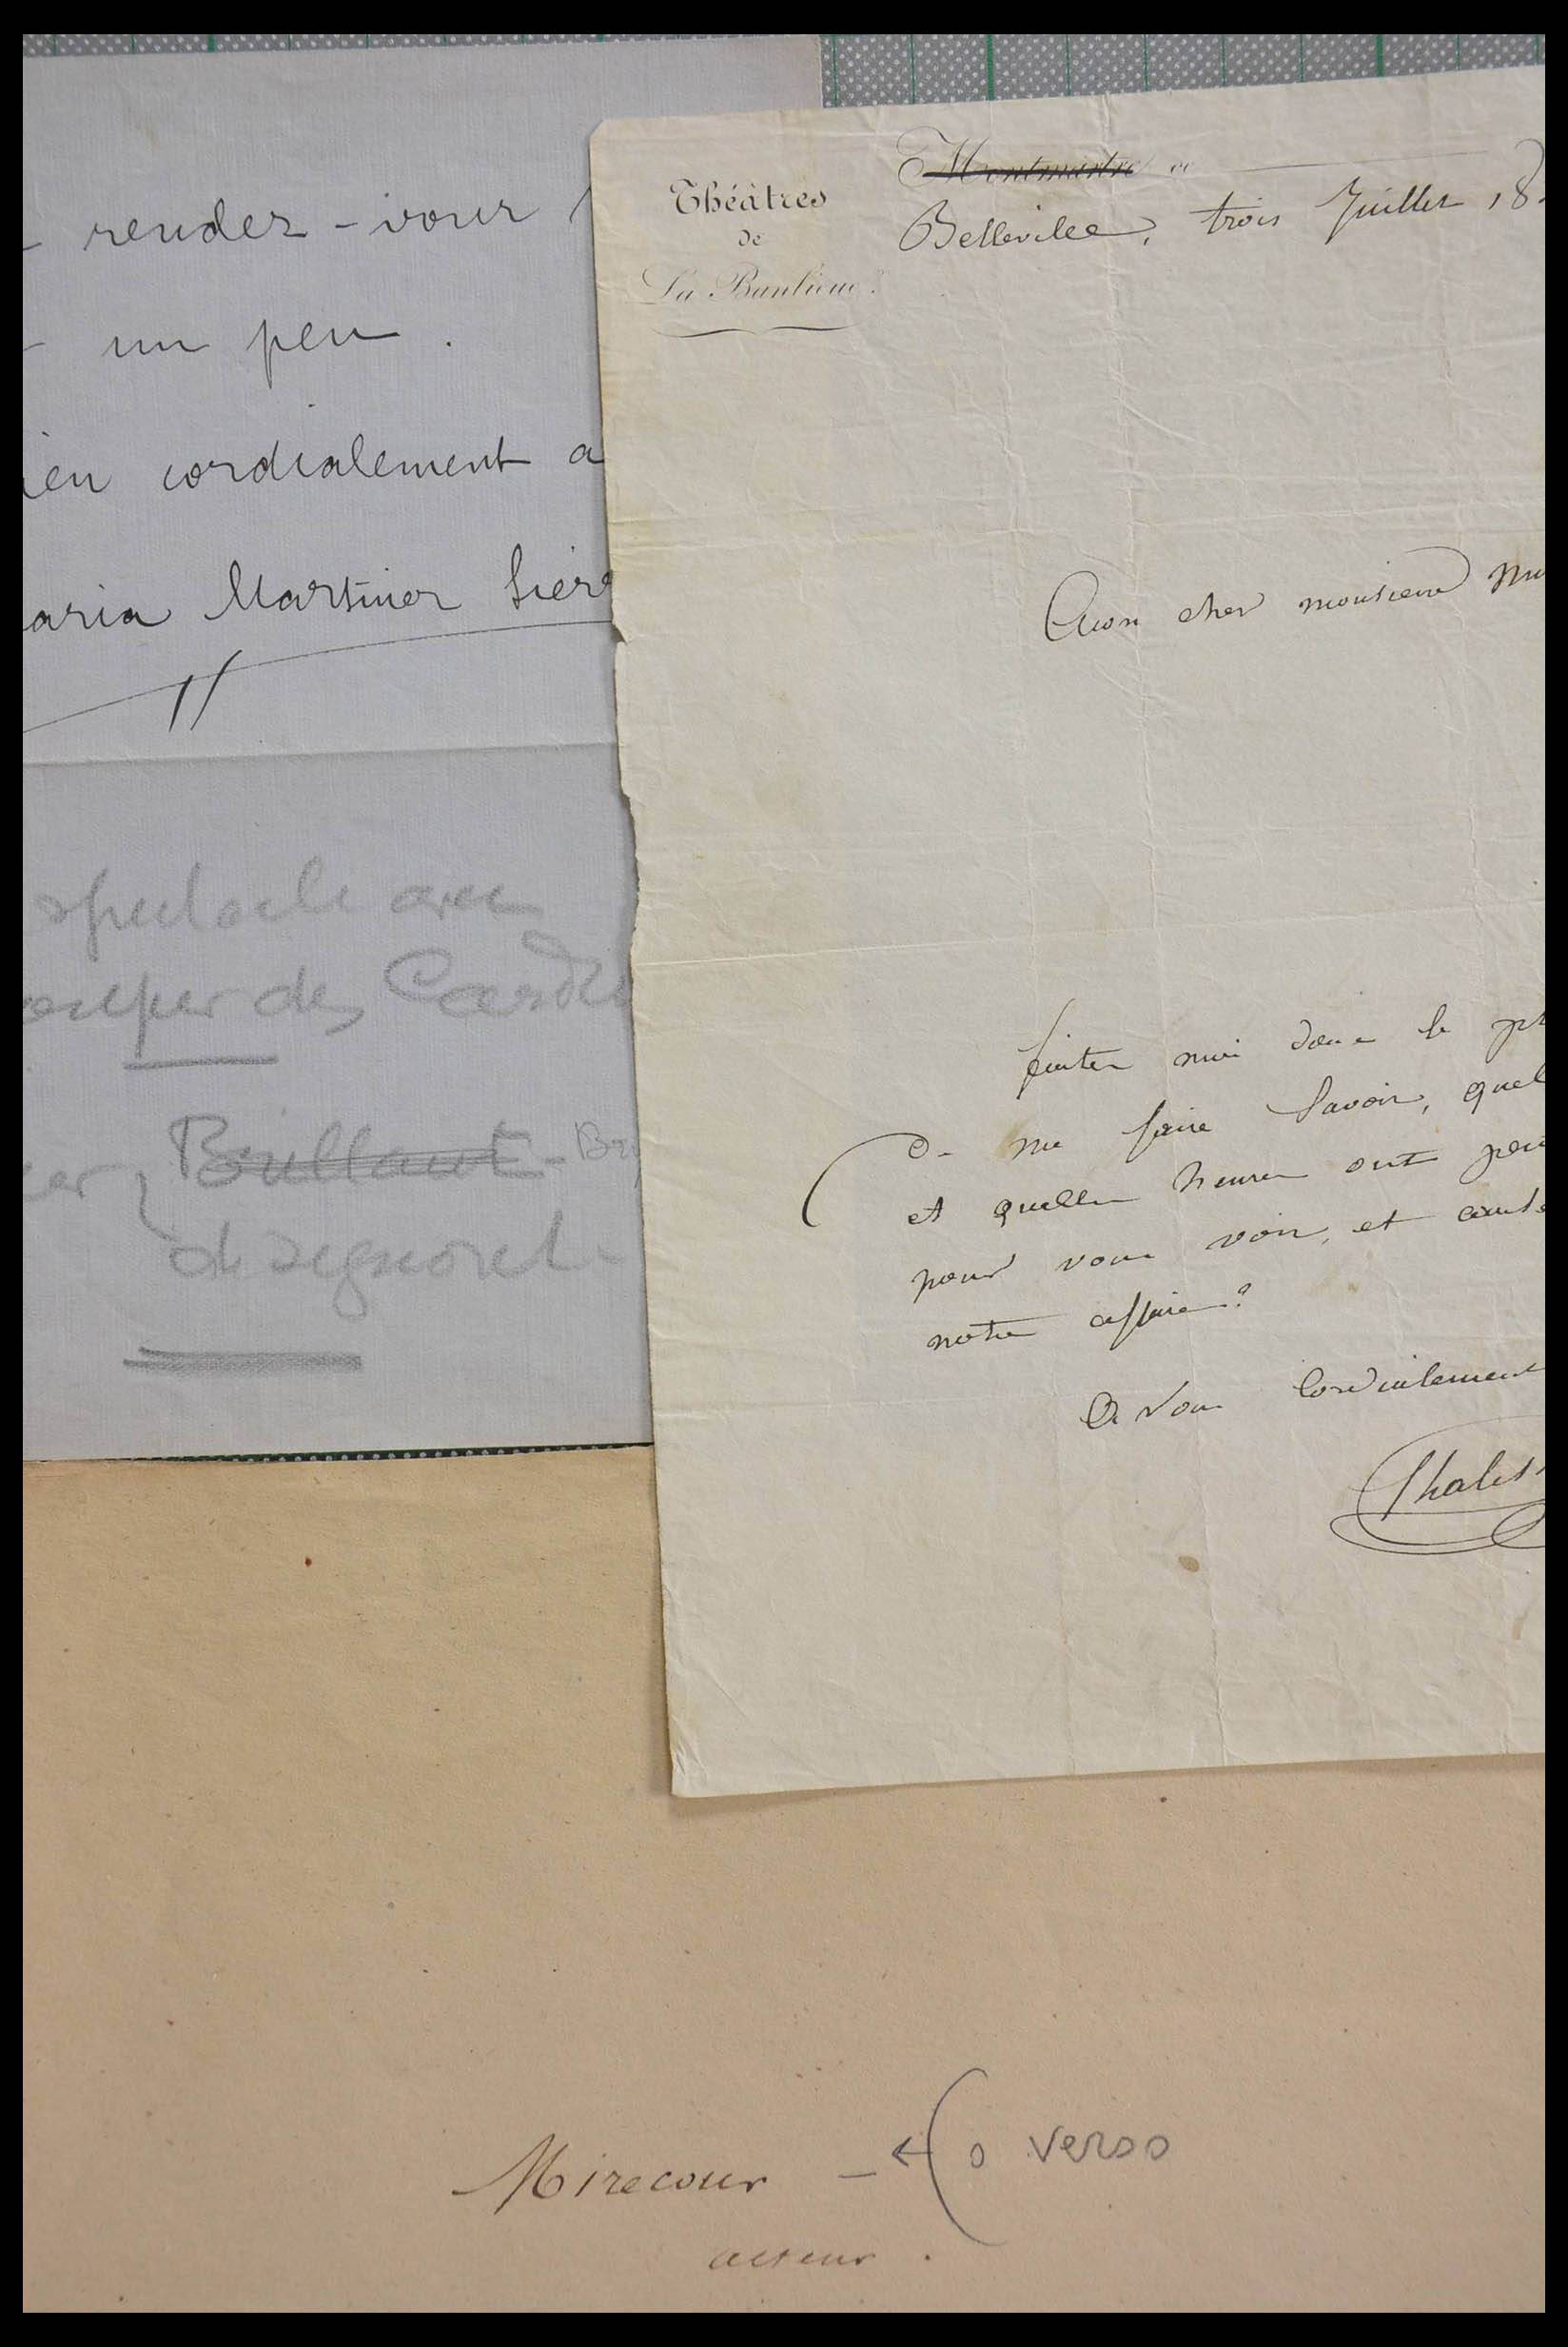 - rendez-vour
- un peu.
ien cordialement a
aria Martinez Sierr
spectacle avec
couper des Cardi
cer, Brillant - Br
de Signoret
Théâtres
de
La Banlieue.
Montmartre
Belleville, trois Juillet 18
Mon cher monsieur
faites moi donc le
De me faire Savoir, quel
et quelles heures ont peu
pour vous voir, et cause
notre affaire?
A Vous Cordialement
Chales
Mirecour - ← ( o verso
acteur.